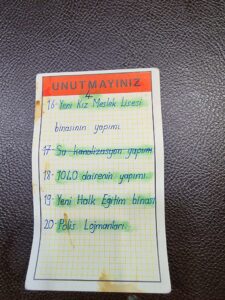 UNUTMAYINIZ
16- Yeni Kız Meslek Lisesi
binasının yapımı.
17- Su kanalizasyon yapımı
18- 1040 dairenin yapımı.
19- Yeni Halk Eğitim binası
20- Polis Lojmanları.